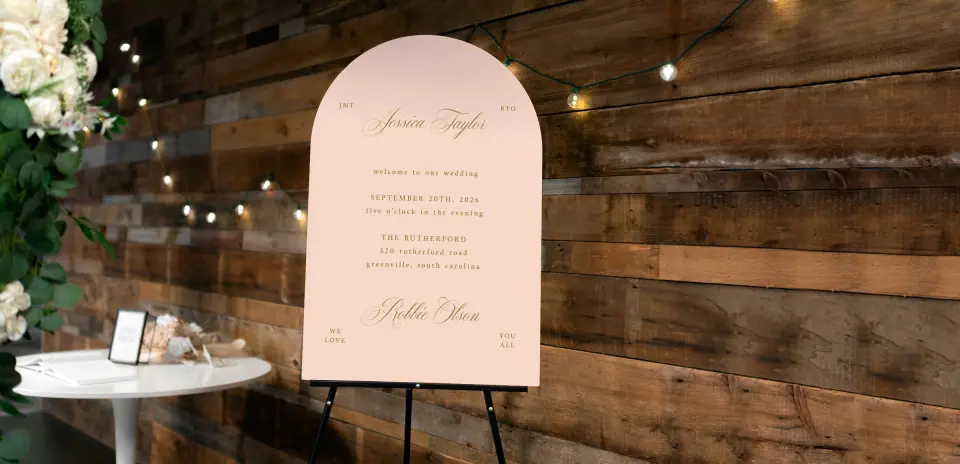 JMT
RTO
Jessica Taylor
welcome to our wedding
SEPTEMBER 20TH, 2026
five o'clock in the evening
THE RUTHERFORD
520 rutherford road
greenville, south carolina
Robbie Olson
WE
LOVE
YOU
ALL